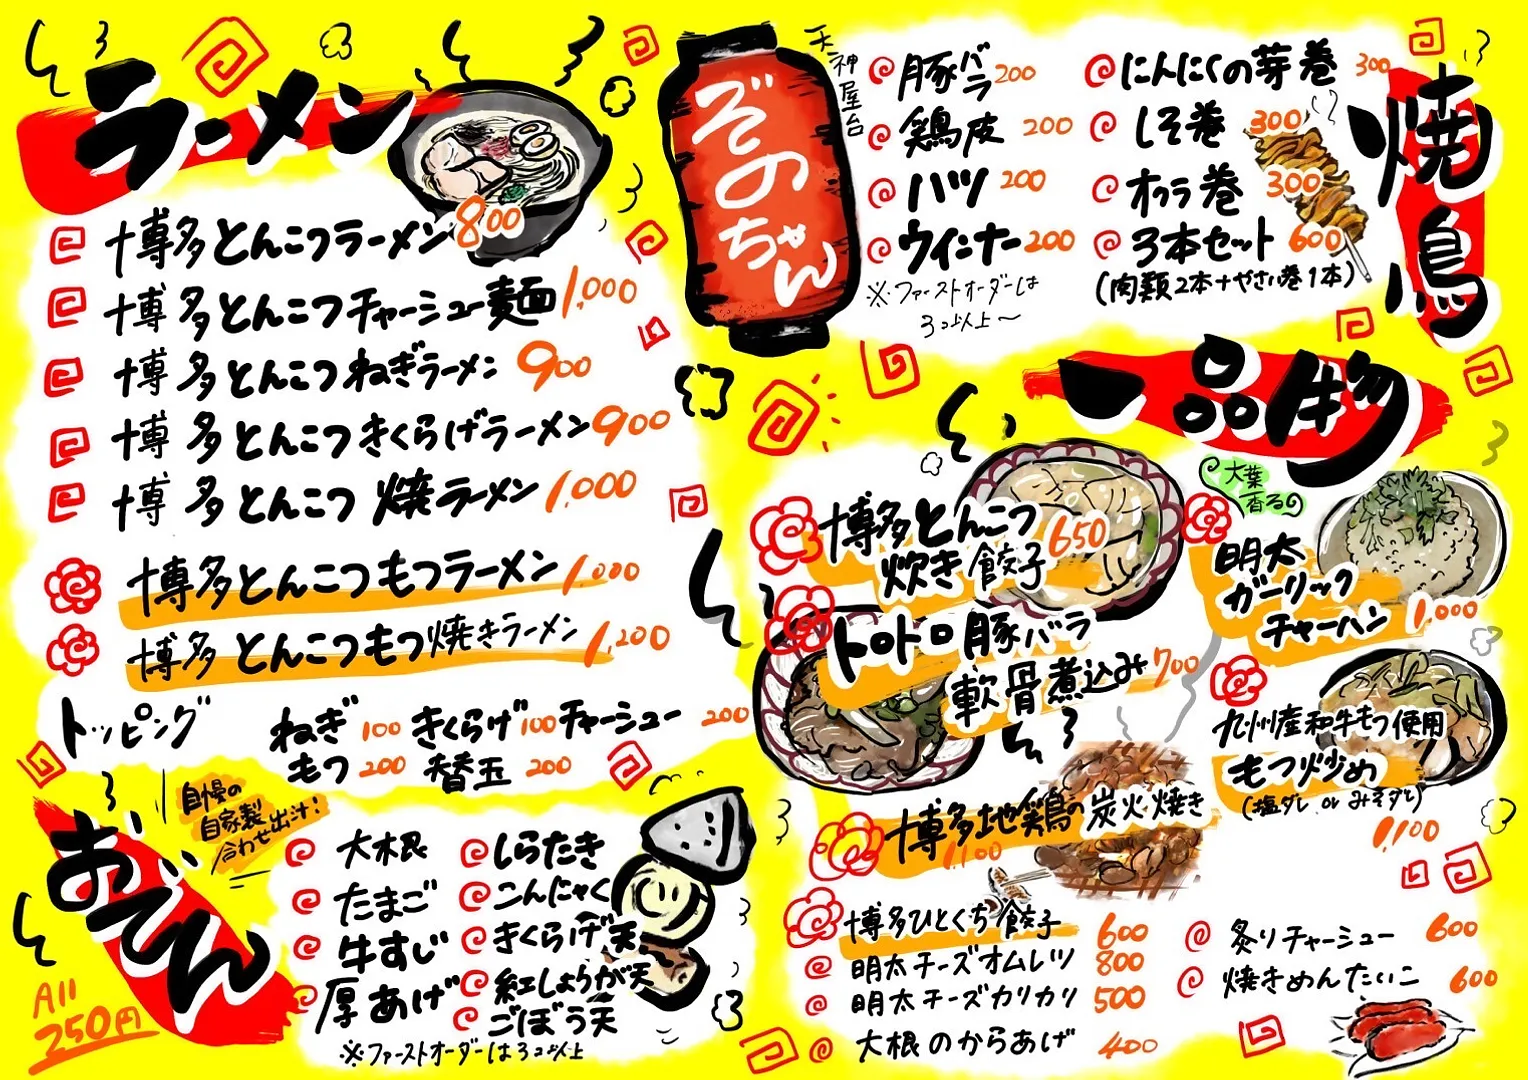 ラーメン
博多とんこつラーメン 800
博多とんこつチャーシュー麺 1,000
博多とんこつねぎラーメン 900
博多とんこつきくらげラーメン 900
博多とんこつ焼ラーメン 1,000
博多とんこつもつラーメン 1,000
博多とんこつもつ焼きラーメン 1,200
トッピング
ねぎ 100 きくらげ 100 チャーシュー 200
もつ 200 替玉 200
おでん
自慢の
自家製
合わせ出汁!
All
250円
大根
たまご
牛すじ
厚あげ
しらたき
こんにゃく
きくらげ天
紅しょうが天
ごぼう天
※ファーストオーダーは3コ以上
天神屋台
ぞのちゃん
焼鳥
豚バラ 200
鶏皮 200
ハツ 200
ウインナー 200
※ファーストオーダーは
3コ以上〜
にんにくの芽巻 300
しそ巻 300
オクラ巻 300
3本セット 600
(肉類2本+やさい巻1本)
一品物
博多とんこつ
炊き餃子 650
トロトロ豚バラ
軟骨煮込み 700
博多地鶏の炭火焼き
1100
博多ひとくち餃子 600
明太チーズオムレツ 800
明太チーズカリカリ 500
大根のからあげ 400
大葉
香るの
明太
ガーリック
チャーハン 1,000
九州産和牛もつ使用
もつ炒め
(塩ダレ or みそダレ)
1,100
炙りチャーシュー 600
焼きめんたいこ 600